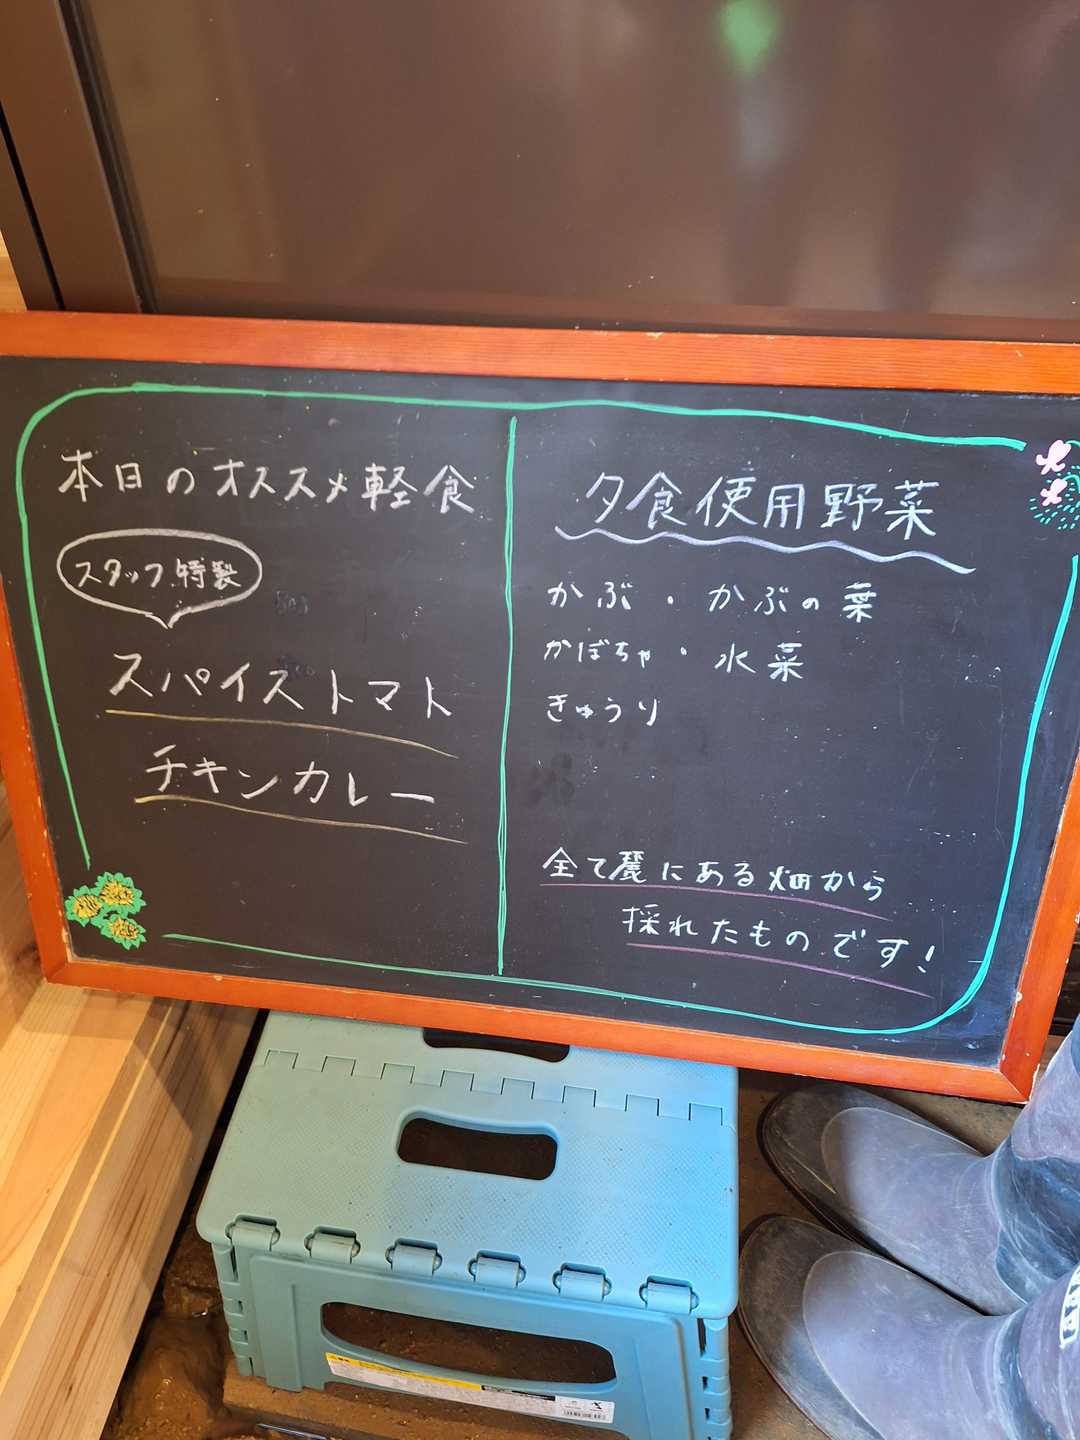 本日のオススメ軽食
スタッフ特製
スパイストマト
チキンカレー
夕食使用野菜
かぶ・かぶの葉
かぼちゃ・水菜
きゅうり
全て麓にある畑から
採れたものです!